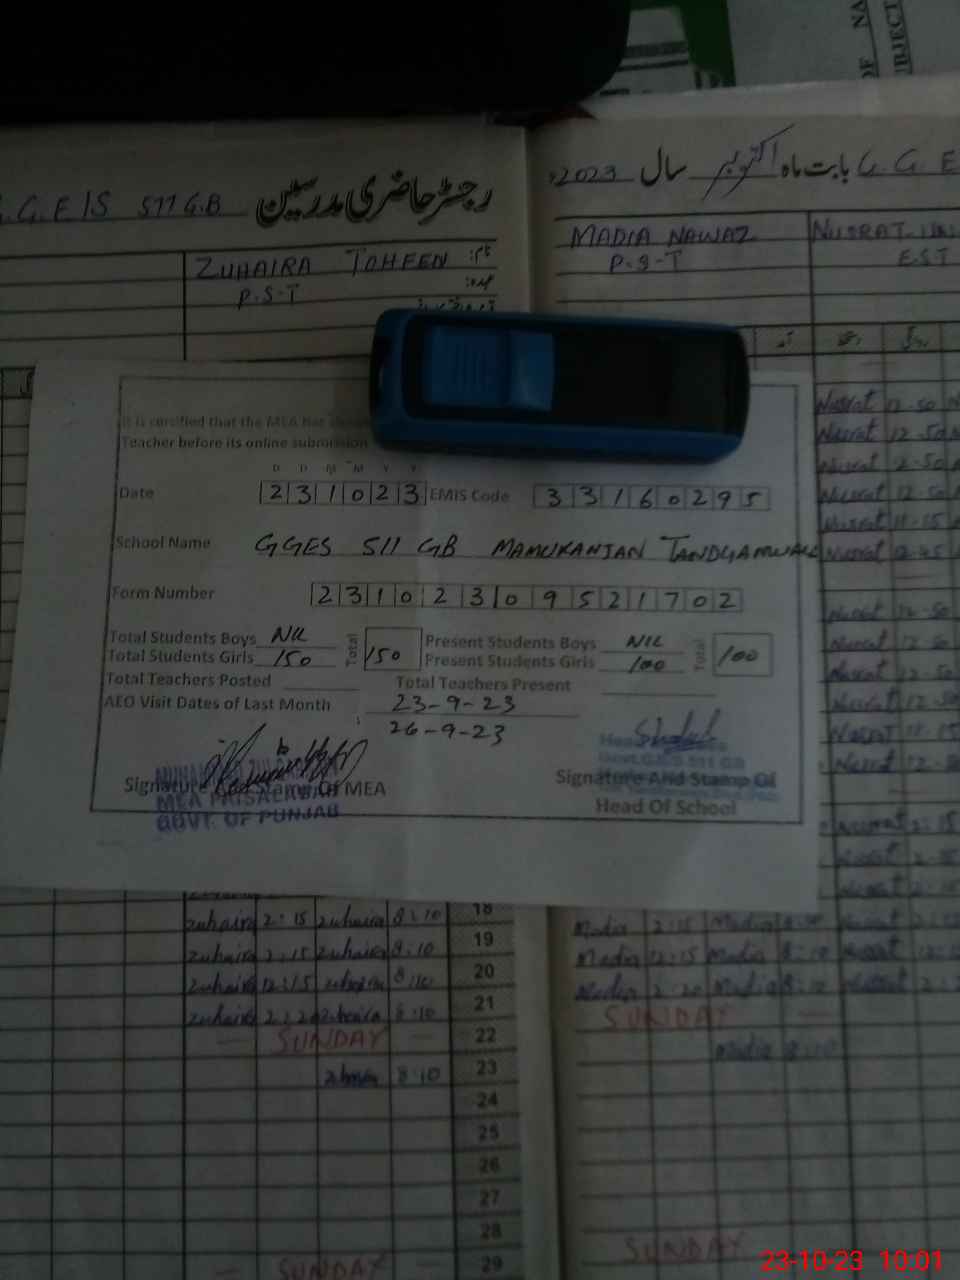 NA
OF
BJECT
G.G.E/S 511 G.B رجسٹر حاضری مدرسین
2023 سال اکتوبر بابت ماہ G.G.E
ZUHAIRA TOHEEN نام:
P.S.T عہدہ:
MADIA NAWAZ
P.S.T
NUSRAT
E.S.T
It is certified that the MEA has
Teacher before its online submission
D D M M Y Y
Date 231023 EMIS Code 33160295
School Name GGES 511 GB MAMUKANJAN TANDLIANWALA
Form Number 2310230952 1702
Total Students Boys NIL Total 150 Present Students Boys NIL Total 100
Total Students Girls 150 Present Students Girls 100
Total Teachers Posted Total Teachers Present
AEO Visit Dates of Last Month 23-9-23
26-9-23
Signature And Stamp Of MEA
MEA FAISALABAD
GOVT. OF PUNJAB
Signature And Stamp Of
Head Of School
Govt. G.E/S 511 GB
Nusrat 12.50
Nusrat 12.50
Nusrat 12.50
Nusrat 12.50
Nusrat 11.15
Nusrat 12.45
Nusrat 12.50
Nusrat 12.50
Nusrat 12.50
Nusrat 12.50
Nusrat 11.15
Nusrat 12.50
Nusrat 2:15
Nusrat
Nusrat
zuhaira 2:15 zuhaira 8:10 18 Madia 2:15 Madia Nusrat
zuhaira 2:15 zuhaira 8:10 19 Madia 12:15 Madia 8:10 Nusrat
zuhaira 12:15 zuhaira 8:10 20 Madia 2:20 Madia 8:10 Nusrat
zuhaira 2:20 zuhaira 8:10 21 SUNDAY
SUNDAY 22 Madia 8:10
8:10 23
24
25
26
27
28
SUNDAY 29 SUNDAY
23-10-23 10:01